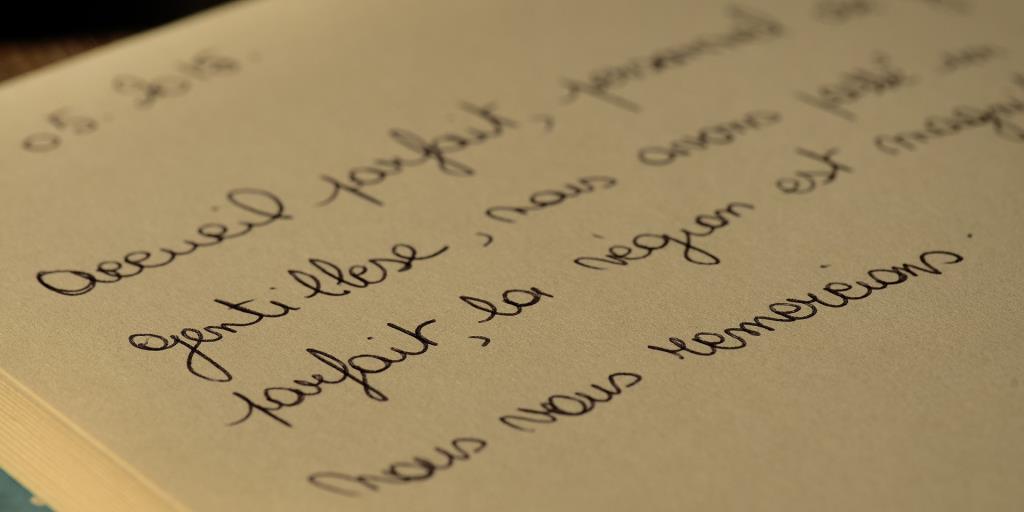 05. 2018.
Accueil parfait,
gentillese, nous avons passé un
parfait, la région est
nous vous remercions.